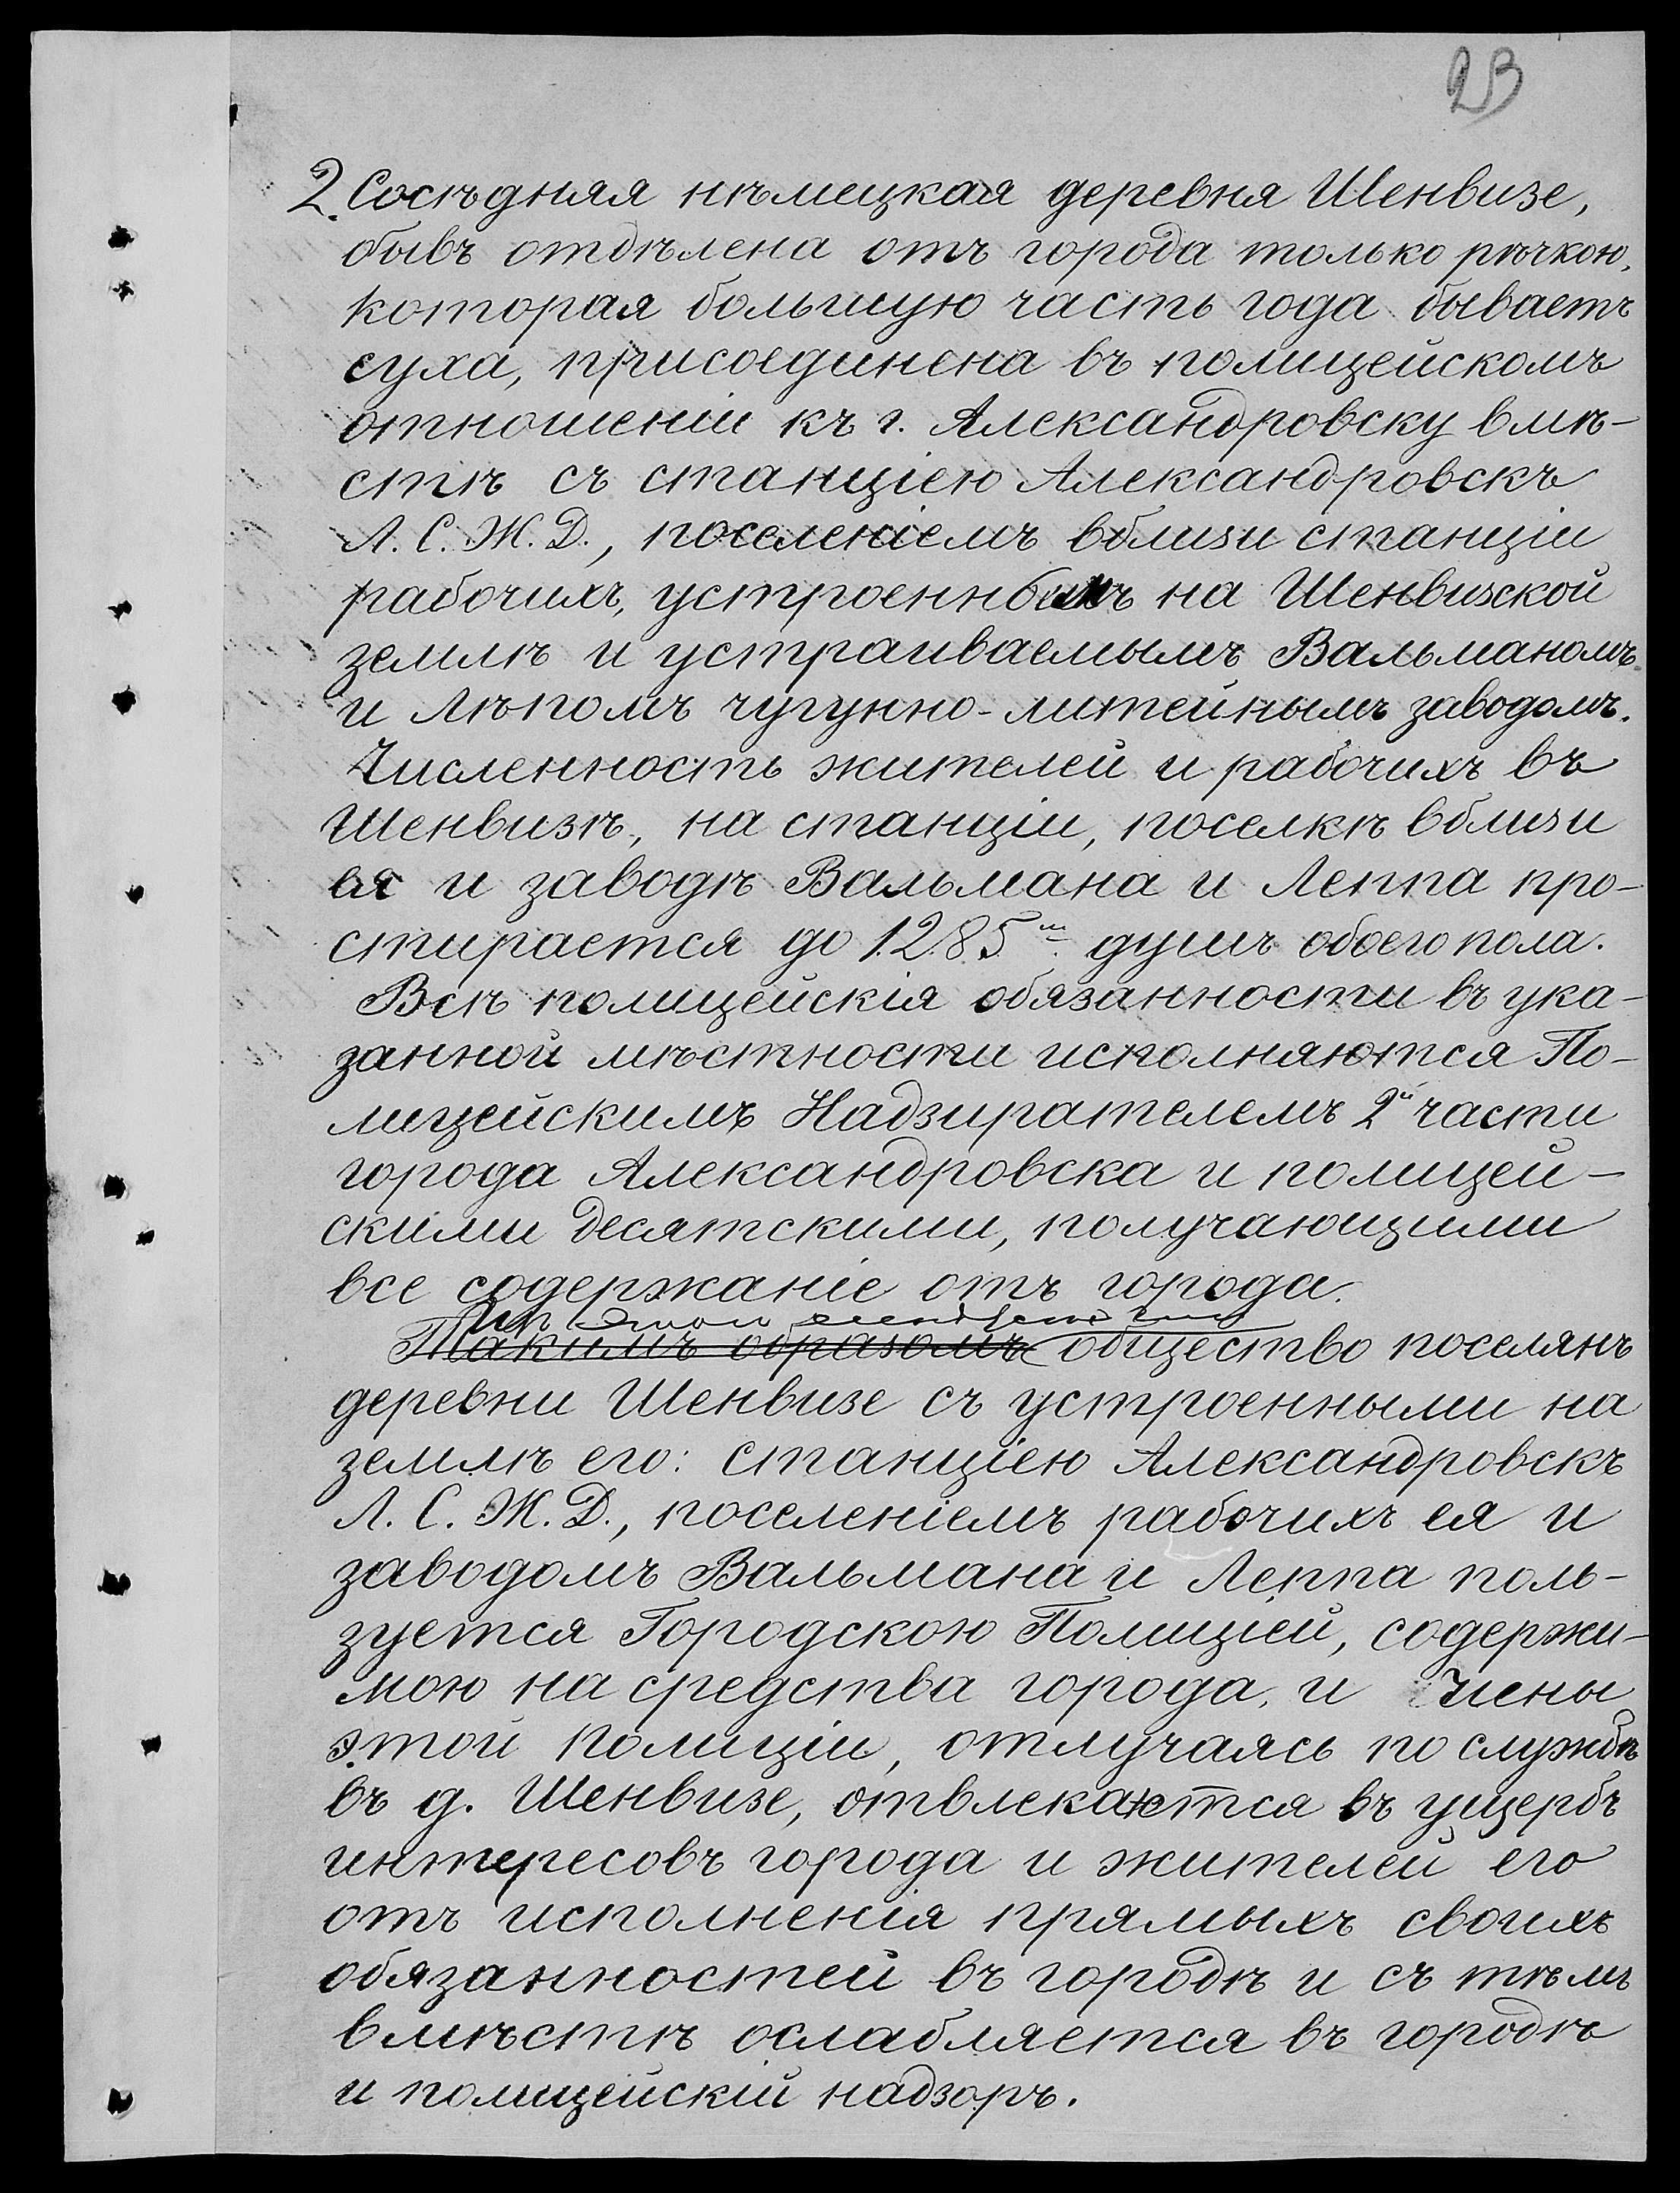 23
2. Сосѣдняя нѣмецкая деревня Шенвизе,
бывъ отдѣлена отъ города только рѣчкою,
которая большую часть года бываетъ
суха, присоединена въ полицейскомъ
отношеніи къ г. Александровску вмѣ-
стѣ съ станціею Александровскъ
Л. С. Ж. Д., поселеніемъ вблизи станціи
рабочихъ, устроеннымъ на Шенвизской
землѣ и устраиваемымъ Вальманомъ
и Лѣпомъ чугунно-литейнымъ заводомъ.
Численность жителей и рабочихъ въ
Шенвизѣ, на станціи, поселкѣ вблизи
ея и заводѣ Вальмана и Леппа про-
стирается до 1285ти душъ обоего пола.
Всѣ полицейскія обязанности въ ука-
занной мѣстности исполняются По-
лицейскимъ Надзирателемъ 2й части
города Александровска и полицей-
скими десятскими, получающими
все содержаніе отъ города.
При этомъ
Такимъ образомъ общество поселянъ
деревни Шенвизе съ устроенными на
землѣ его: станціею Александровскъ
Л. С. Ж. Д., поселеніемъ рабочихъ ея и
заводомъ Вальмана и Леппа поль-
зуется Городскою Полиціей, содержи-
мою на средства города, и Члены
этой полиціи, отлучаясь по службѣ
въ д. Шенвизе, отвлекаются въ ущербъ
интересовъ города и жителей его
отъ исполненія прямыхъ своихъ
обязанностей въ городѣ и съ тѣмъ
вмѣстѣ ослабляется въ городѣ
и полицейскій надзоръ.